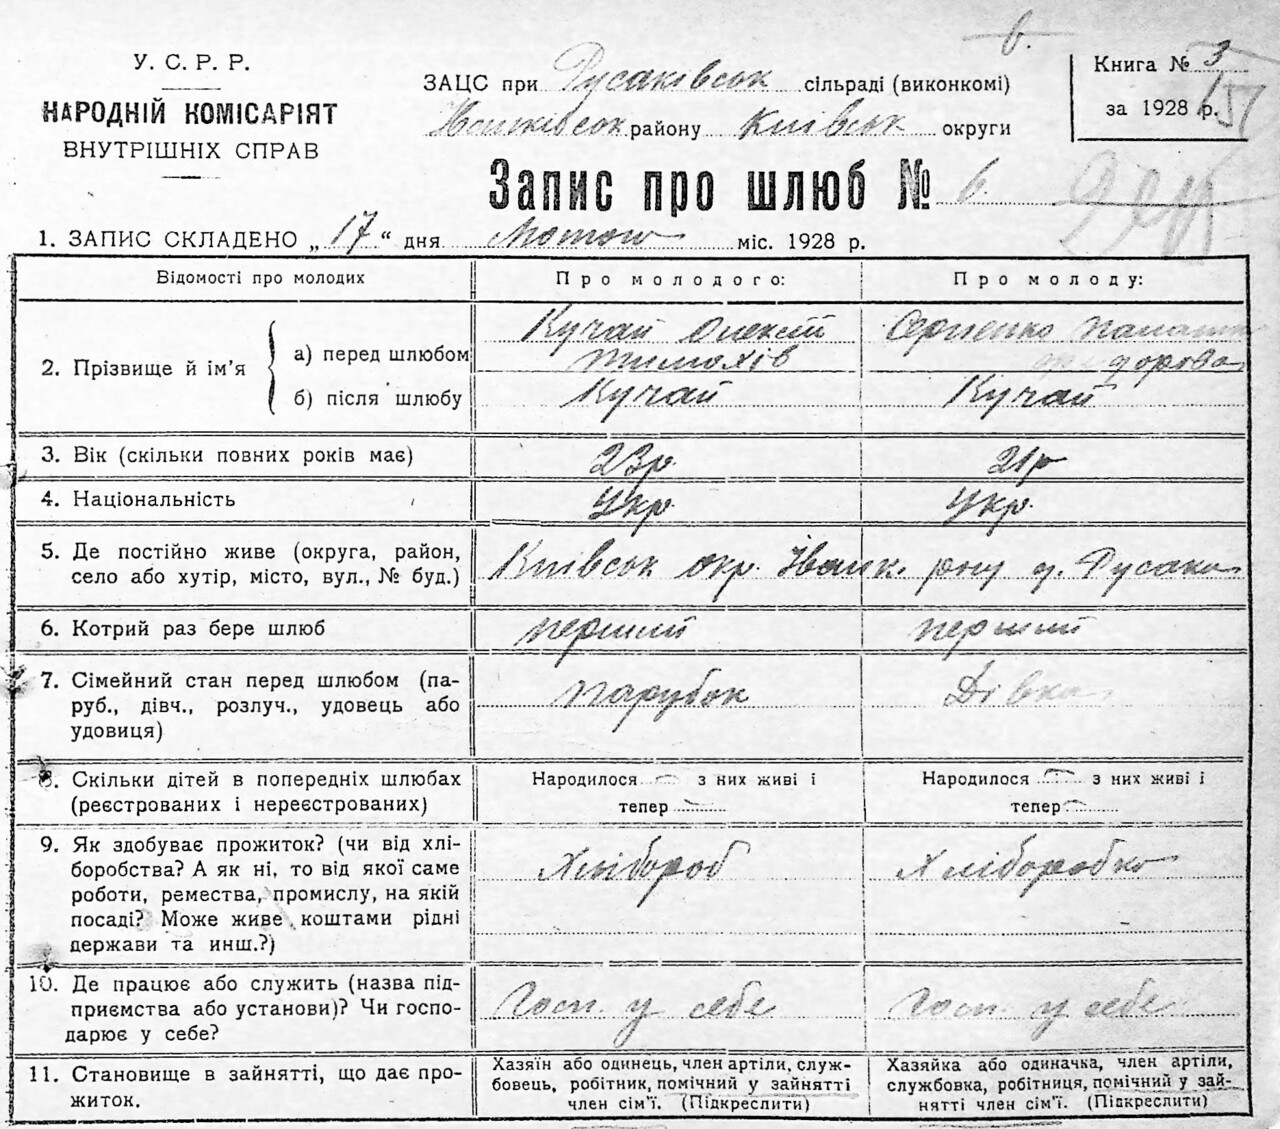 6.
У. С. Р. Р.
НАРОДНІЙ КОМІСАРІЯТ
ВНУТРІШНІХ СПРАВ
ЗАЦС при Русаківськ сільраді (виконкомі)
районy Київськ округи
Книга № 3
за 1928 р.
Запис про шлюб № 6.
1. ЗАПИС СКЛАДЕНО „17“ дня міс. 1928 р.
Відомості про молодих Про молодого: Про молоду:
2. Прізвище й ім’я
а) перед шлюбом Кучай Олексій Сергієнко
Тимохів
б) після шлюбу Кучай Кучай
3. Вік (скільки повних років має) 23р. 21р
4. Національність Укр. Укр.
5. Де постійно живе (округа, район,
село або хутір, місто, вул., № буд.) Київськ окр. Іванк. рну
6. Котрий раз бере шлюб перший перший
7. Сімейний стан перед шлюбом (па-
руб., дівч., розлуч., удовець або
удовиця) парубок Дівка
8. Скільки дітей в попередніх шлюбах
(реєстрованих і нереєстрованих)
Народилося — з них живі і
тепер —
Народилося — з них живі і
тепер —
9. Як здобуває прожиток? (чи від хлі-
боробства? А як ні, то від якої саме
роботи, ремества, промислу, на якій
посаді? Може живе коштами рідні
держави та инш.?)
Хлібороб Хліборобка
10. Де працює або служить (назва під-
приємства або установи)? Чи госпо-
дарює у себе?
Госп. у себе Госп. у себе
11. Становище в зайнятті, що дає про-
житок.
Хазяїн або одинець, член артіли, служ-
бовець, робітник, помічний у зайнятті
член сім’ї. (Підкреслити)
Хазяйка або одиначка, член артіли,
службовка, робітниця, помічний у зай-
нятті член сім’ї. (Підкреслити)